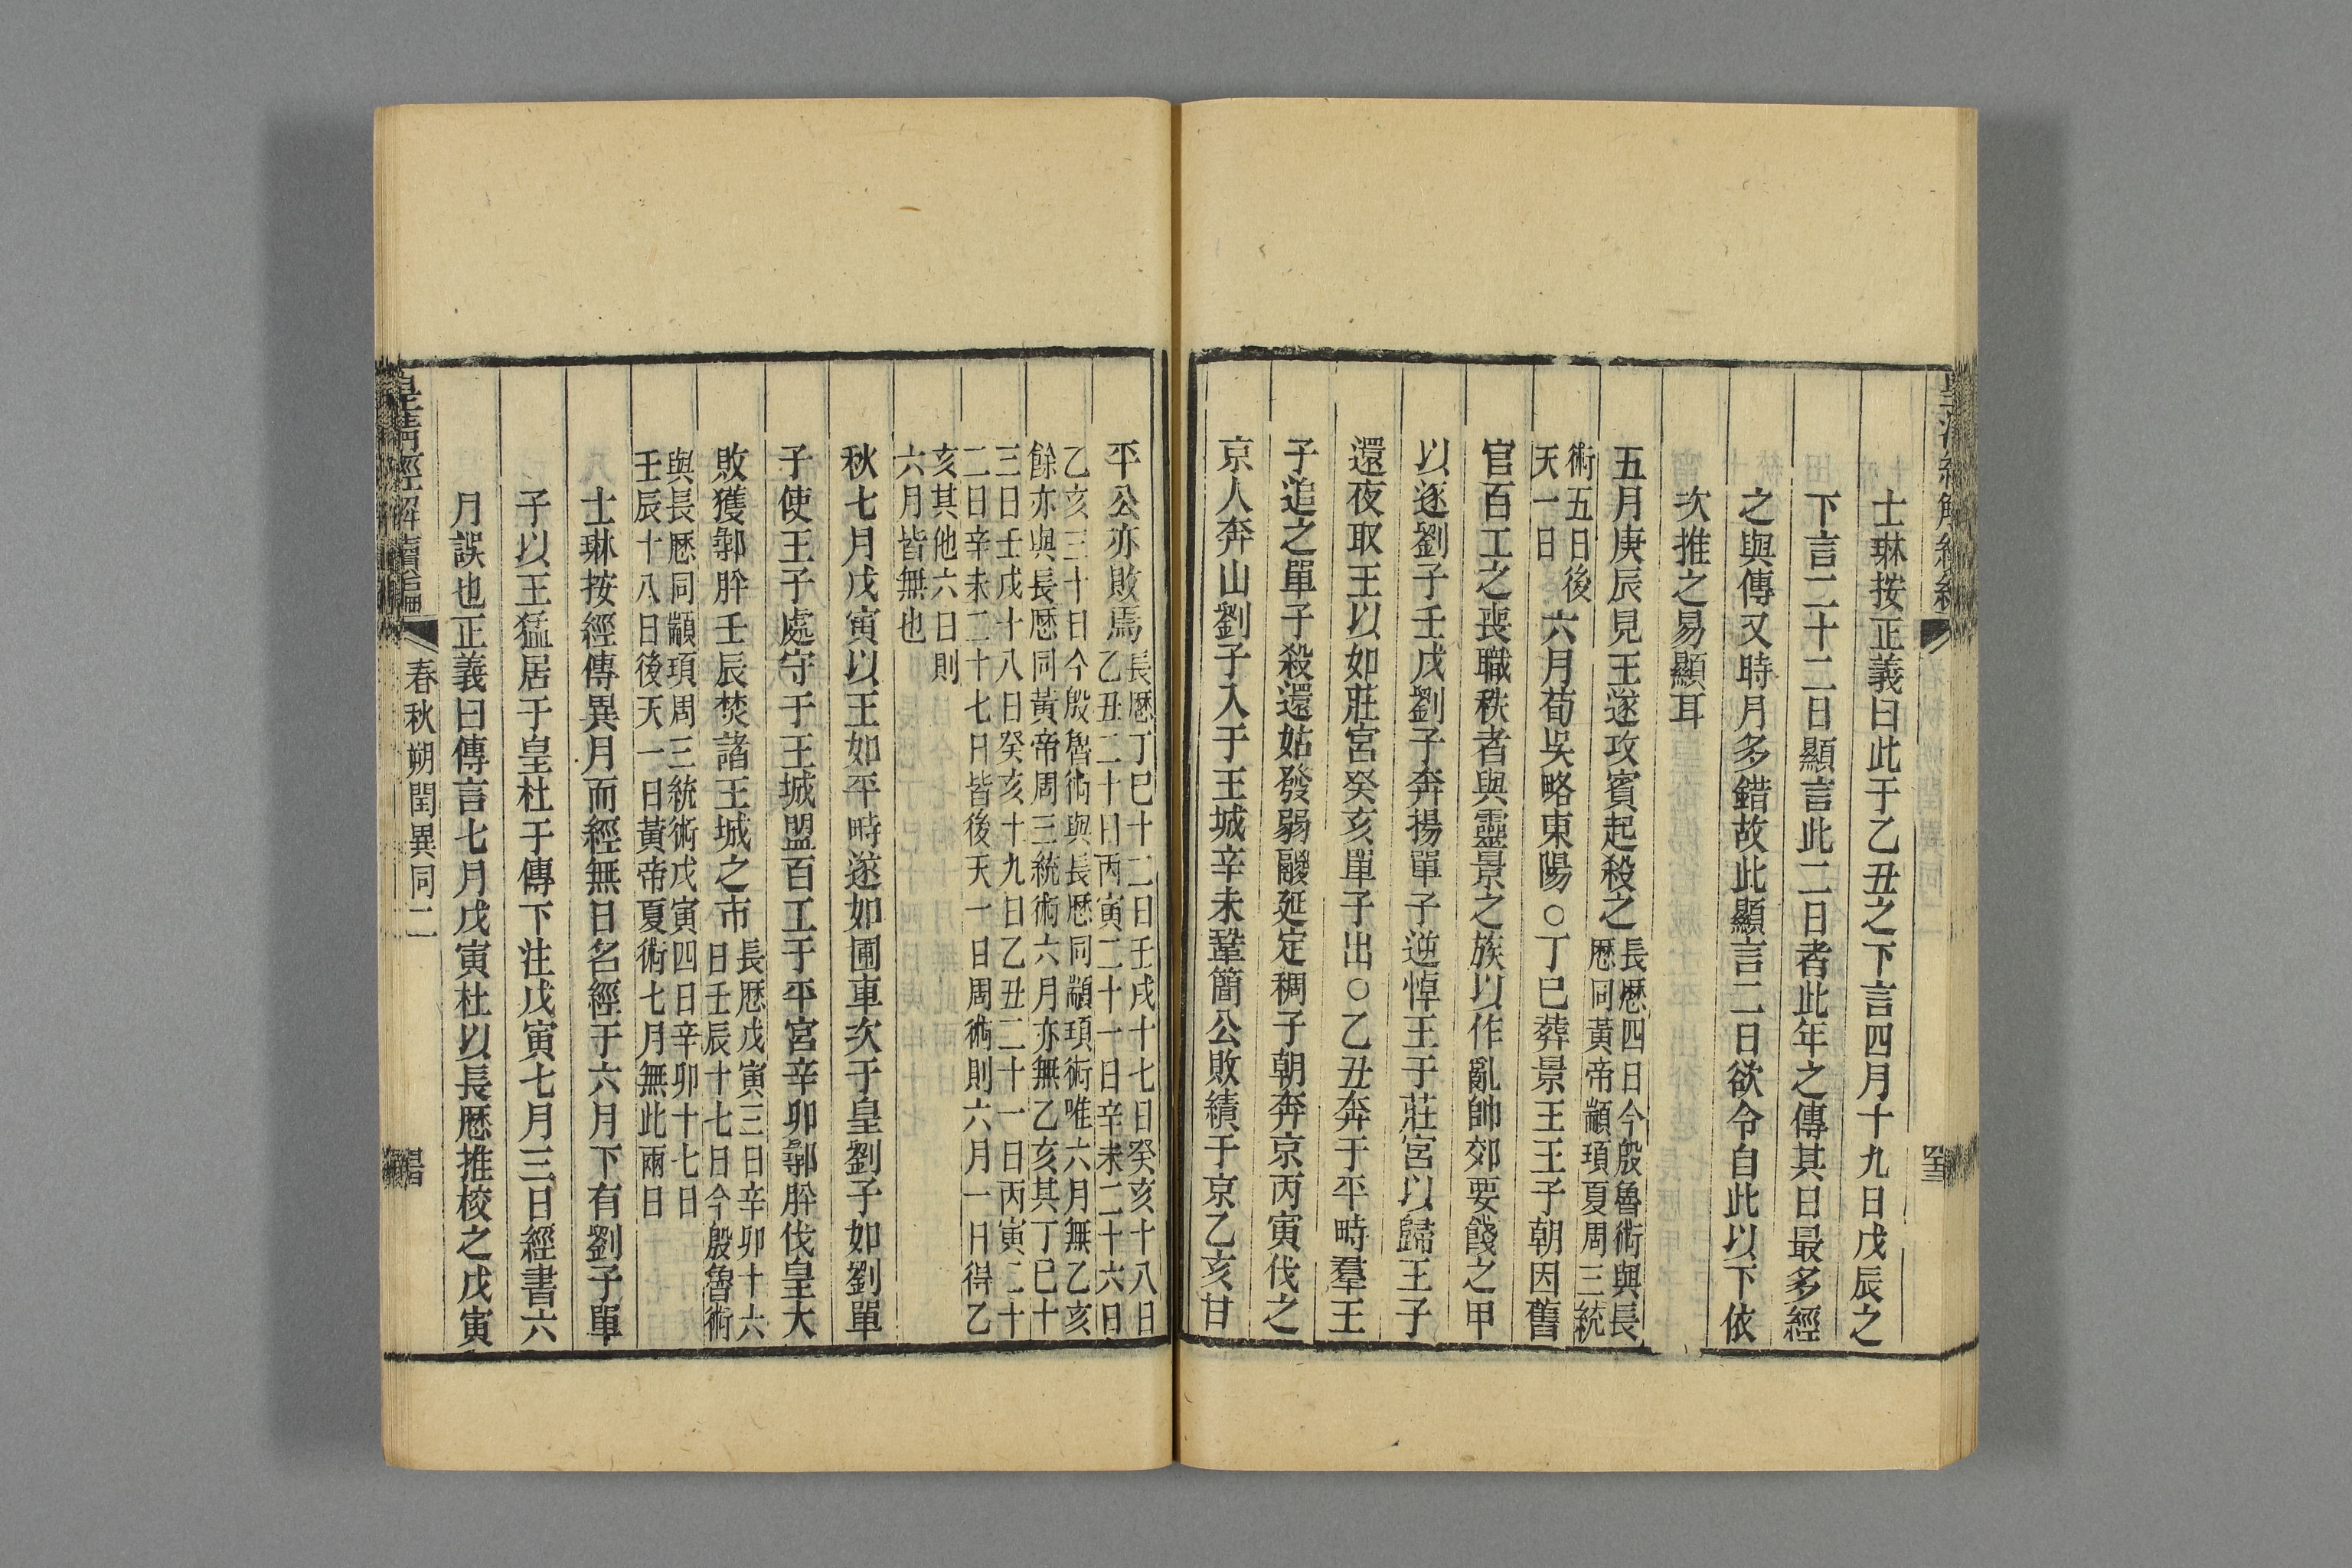 士琳按正義曰此于乙丑之下言四月十九日戊辰之
下言二十二日顯言此二日者此年之傳其日最多經
之與傳又時月多錯故此顯言二日欲令自此以下依
次推之易顯耳
五月庚辰見王遂攻賓起殺之長厯四日今殷魯術與長
厯同黃帝顓頊夏周三統
術五日後
天一日六月荀吳略東陽○丁巳葬景王王子朝因舊
官百工之喪職秩者與靈景之族以作亂帥郊要餞之甲
以逐劉子壬戌劉子奔揚單子逆悼王于莊宮以歸王子
還夜取王以如莊宮癸亥單子出○乙丑奔于平畤羣王
子追之單子殺還姑發弱鬷延定稠子朝奔京丙寅伐之
京人奔山劉子入于王城辛未鞏簡公敗績于京乙亥甘
平公亦敗焉長厯丁巳十二日壬戌十七日癸亥十八日
乙丑二十日丙寅二十一日辛未二十六日
乙亥三十日今殷魯術與長厯同顓頊術唯六月無乙亥
餘亦與長厯同黃帝周三統術六月亦無乙亥其丁巳十
三日壬戌十八日癸亥十九日乙丑二十一日丙寅二十
二日辛未二十七日皆後天一日周術則六月一日得乙
亥其他六日則
六月皆無也
秋七月戊寅以王如平畤遂如圃車次于皇劉子如劉單
子使王子處守于王城盟百工于平宮辛卯鄩肸伐皇大
敗獲鄩肸壬辰焚諸王城之市長厯戊寅三日辛卯十六
日壬辰十七日今殷魯術
與長厯同顓頊周三統術戊寅四日辛卯十七日
壬辰十八日後天一日黃帝夏術七月無此兩日
士琳按經傳異月而經無日名經于六月下有劉子單
子以王猛居于皇杜于傳下注戊寅七月三日經書六
月誤也正義曰傳言七月戊寅杜以長厯推校之戊寅
皇清經解續編
春秋朔閏異同二